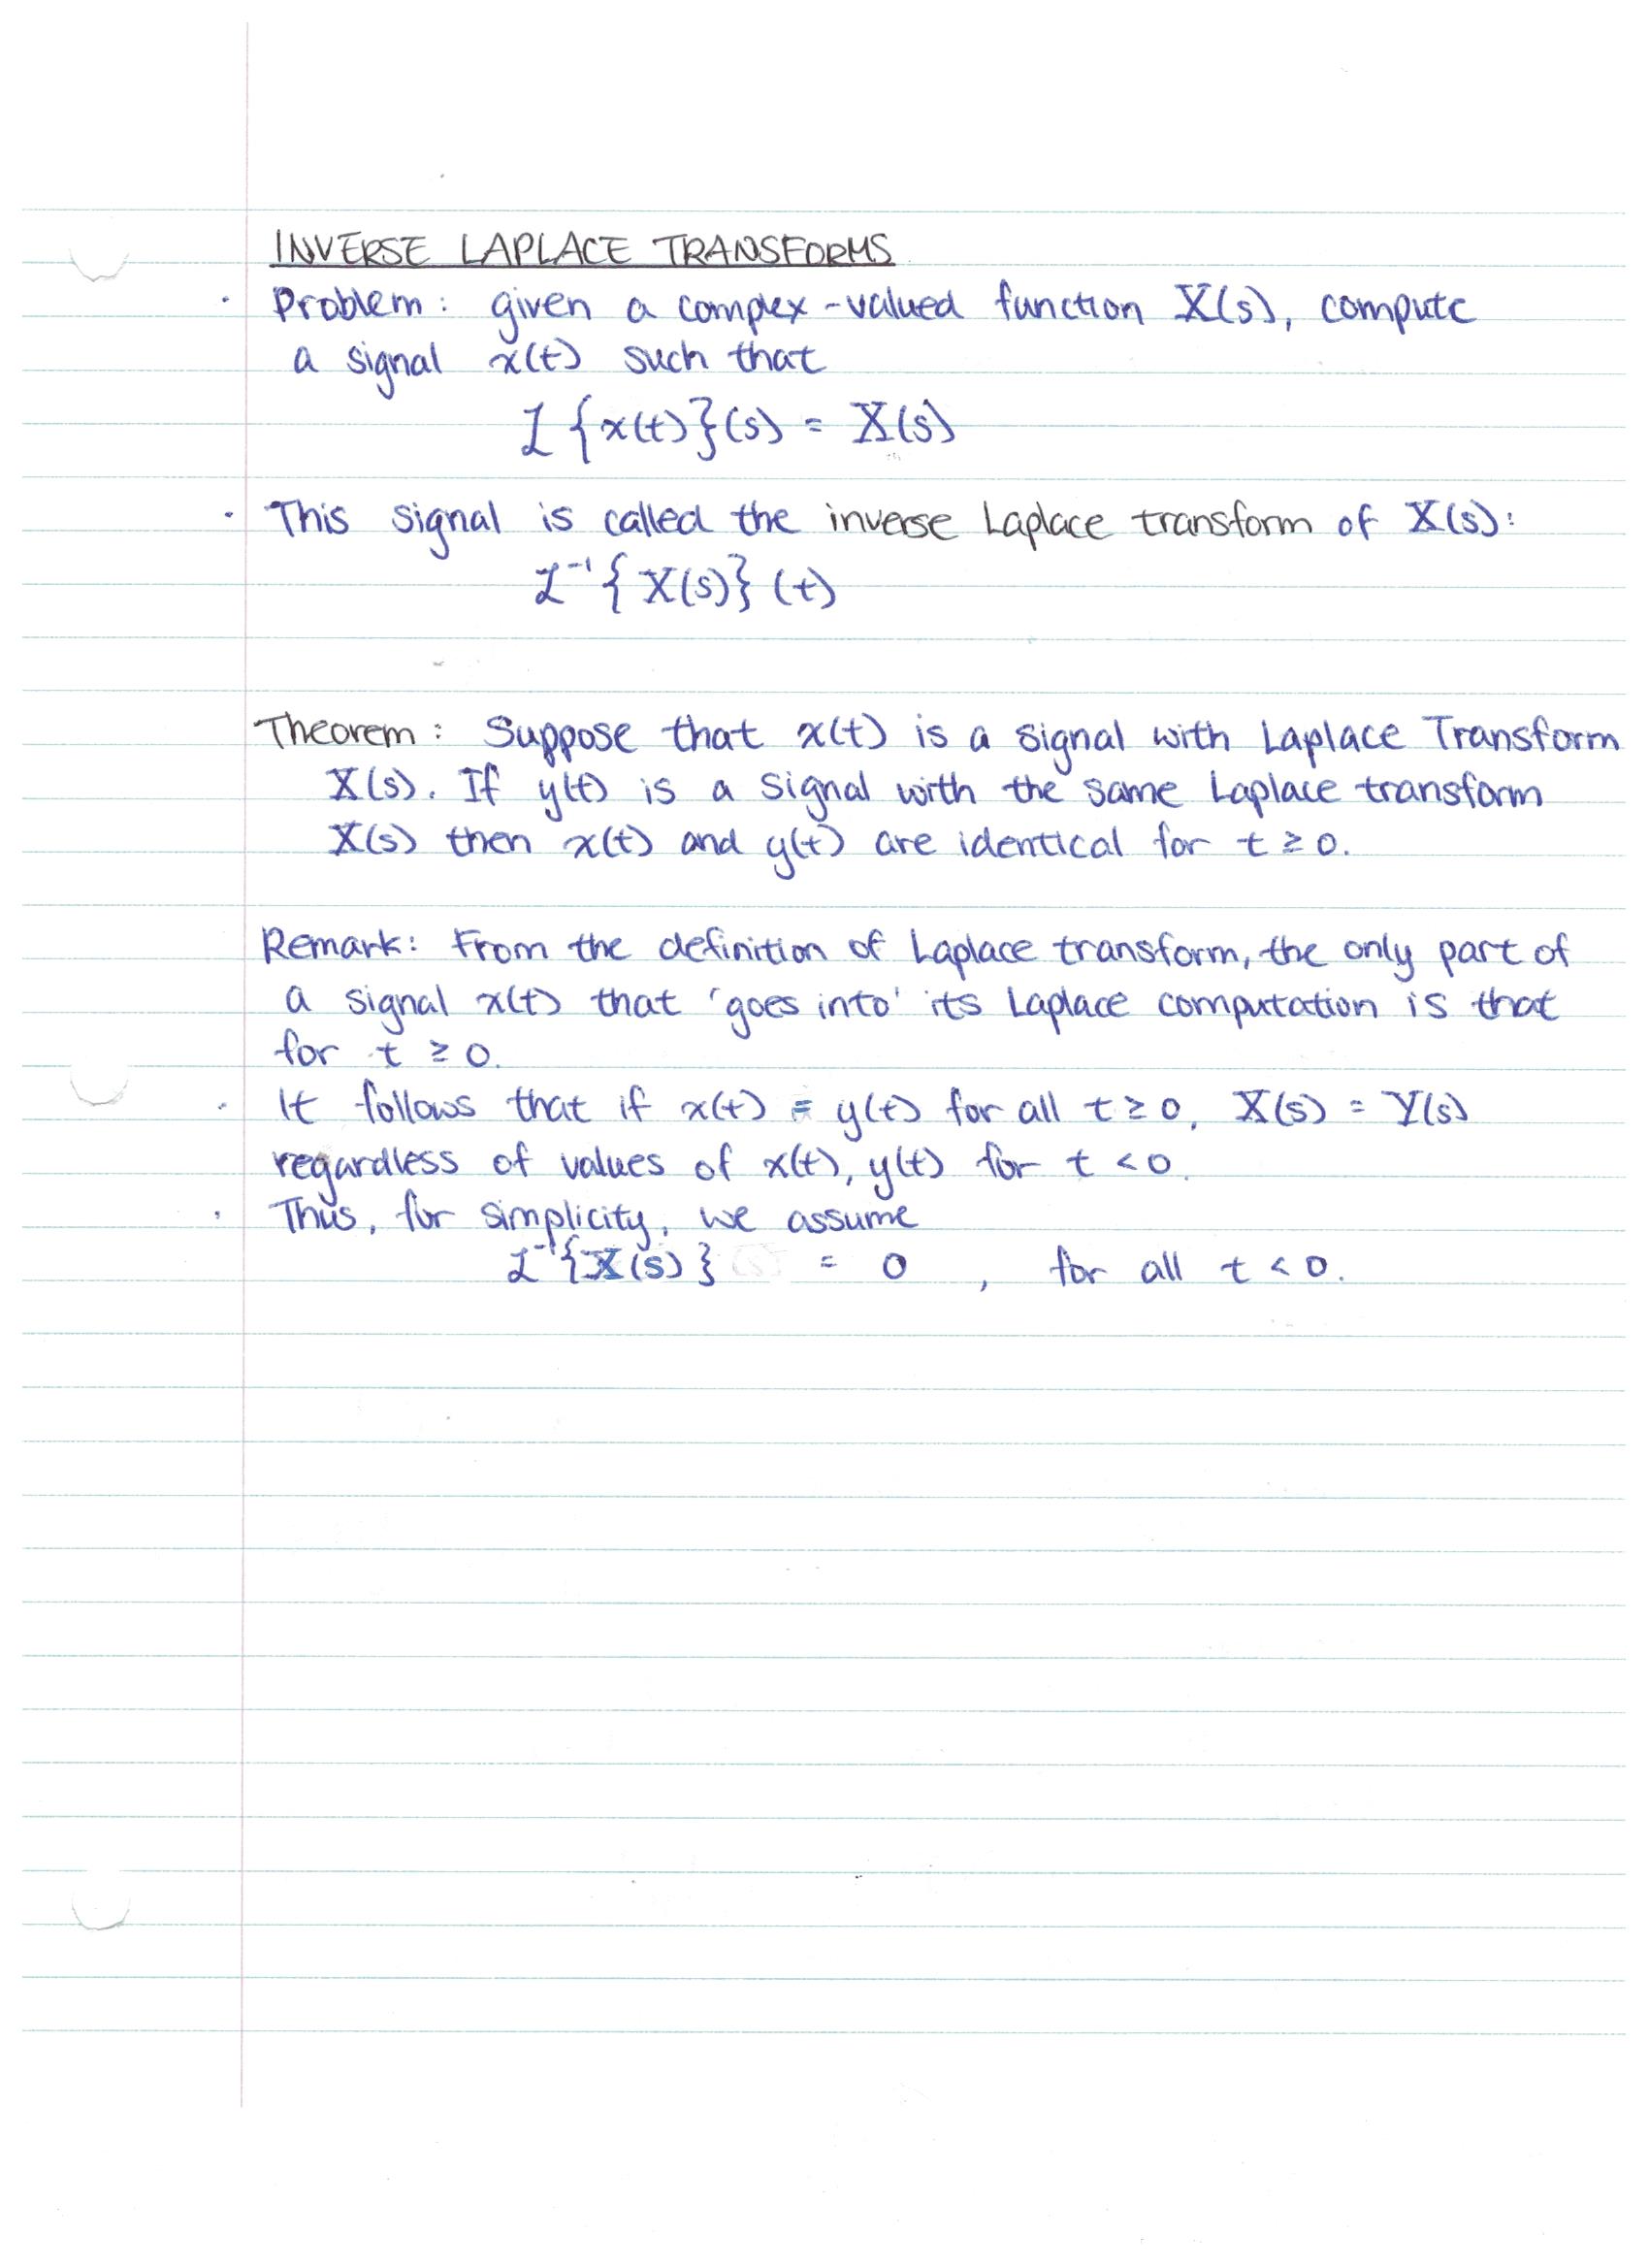 INVERSE LAPLACE TRANSFORMS
· Problem: given a complex-valued function X(s), compute
a signal x(t) such that
ℒ{x(t)}(s) = X(s)
· This signal is called the inverse Laplace transform of X(s):
ℒ⁻¹{X(s)}(t)
Theorem: Suppose that x(t) is a signal with Laplace Transform
X(s). If y(t) is a signal with the same Laplace transform
X(s) then x(t) and y(t) are identical for t ≥ 0.
Remark: From the definition of Laplace transform, the only part of
a signal x(t) that 'goes into' its Laplace computation is that
for t ≥ 0.
· It follows that if x(t) = y(t) for all t ≥ 0, X(s) = Y(s)
regardless of values of x(t), y(t) for t < 0.
· Thus, for simplicity, we assume
ℒ⁻¹{X(s)} = 0 , for all t < 0.